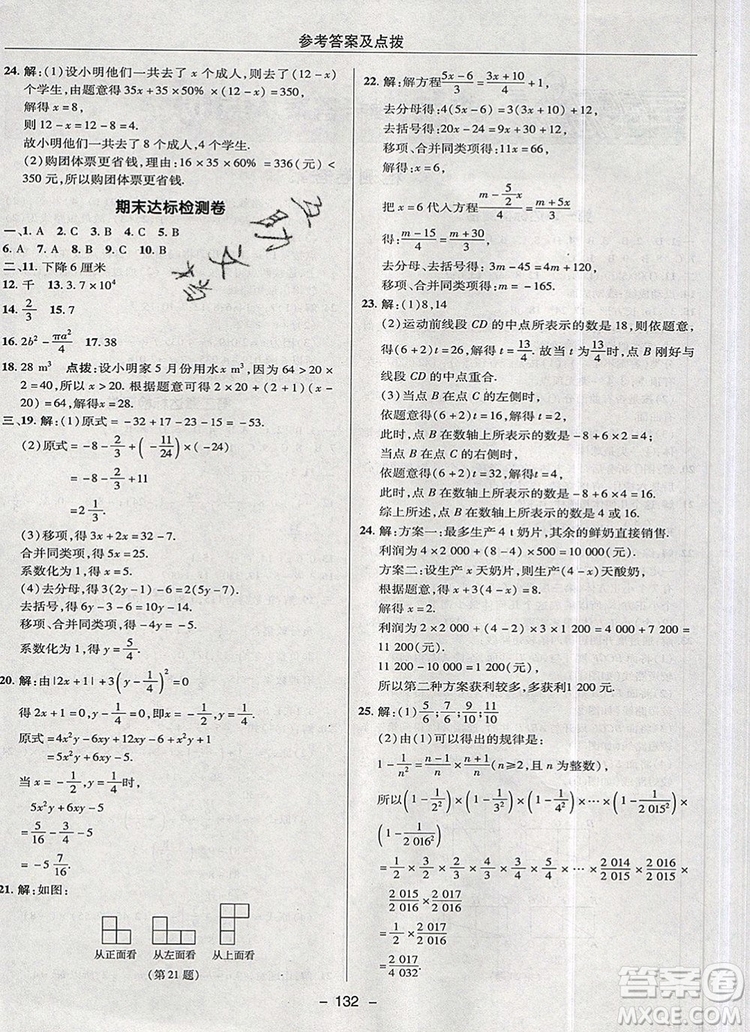 参考答案及点拨
24. 解：(1)设小明他们一共去了 x 个成人，则去了(12－x)
个学生，由题意得 35x＋35×50%×(12－x)＝350，
解得 x＝8，
则 12－x＝12－8＝4.
故小明他们一共去了 8 个成人，4 个学生.
(2)购团体票更省钱，理由：16×35×60%＝336(元)＜
350，所以购团体票更省钱.
期末达标检测卷
一、1. A　2. C　3. C　4. A　5. B
6. A　7. C　8. A　9. B　10. B
二、11. 下降 6 厘米
12. 千　13. 3.7×10⁴
14. 2/3　15. 7
16. 2b²－πa²/4　17. 38
18. 28 m³　点拨：设小明家 5 月份用水 x m³，因为 64＞20×
2＝40，所以 x＞20. 根据题意可得 2×20＋(2＋1)(x－
20)＝64. 解得 x＝28.
三、19. 解：(1)原式＝－32＋17－23－15＝－53.
(2)原式＝－8－2/3÷(－11/24)×(－11/24)
＝－8－2/3＋11
＝2 1/3.
(3)移项，得 3x＋2x＝32－7.
合并同类项，得 5x＝25.
系数化为 1，得 x＝5.
(4)去分母，得 3(2y－1)－6＝2(5y－7).
去括号，得 6y－3－6＝10y－14.
移项、合并同类项，得－4y＝－5.
系数化为 1，得 y＝5/4.
20. 解：由|2x＋1|＋3(y－1/4)²＝0
得 2x＋1＝0，y－1/4＝0，即 x＝－1/2，y＝1/4.
原式＝4x²y－6xy＋8xy－4＋x²y＋2－2xy
＝5x²y＋6xy－5
当 x＝－1/2，y＝1/4 时，
5x²y＋6xy－5
＝5/16－3/4－5
＝－5 7/16.
21. 解：如图：
从正面看　从左面看　从上面看
(第 21 题)
22. 解：解方程(5x－6)/3＝(3x＋10)/4＋1，
去分母得：4(5x－6)＝3(3x＋10)＋12，
去括号得：20x－24＝9x＋30＋12，
移项、合并同类项得：11x＝66，
解得：x＝6，
把 x＝6 代入方程(m－(5/2)x)/4＝(m＋5x)/3
得：(m－15)/4＝(m＋30)/3，
去分母、去括号得：3m－45＝4m＋120，
移项、合并同类项得：m＝－165.
23. 解：(1)8，14
(2)运动前线段 CD 的中点所表示的数是 18，则依题意
得(6＋2)t＝26，解得 t＝13/4，所以当 t＝13/4时，点 B 刚好与
线段 CD 的中点重合.
(3)当点 B 在点 C 的左侧时，
依题意得(6＋2)t＝16，解得 t＝2，
此时，点 B 在数轴上所表示的数是－8＋6×2＝4；
当点 B 在点 C 的右侧时，
依题意得(6＋2)t＝32，解得 t＝4，
此时，点 B 在数轴上所表示的数是－8＋6×4＝16.
综上所述，点 B 在数轴上所表示的数是 4 或 16.
24. 解：方案一：最多生产 4 t 奶片，其余的鲜奶直接销售.
利润为 4×2 000＋(8－4)×500＝10 000(元)；
方案二：设生产 x 天奶片，则生产(4－x)天酸奶，
根据题意，得 x＋3(4－x)＝8.
解得 x＝2.
利润为 2×2 000＋(4－2)×3×1 200＝4 000＋7 200＝
11 200(元).
11 200－10 000＝1 200(元)，
所以第二种方案获利较多，多获利 1 200 元.
25. 解：(1)5/6；7/6；9/10；11/10
(2)由(1)可以得出的规律是：
1－1/n²＝(n－1)/n×(n＋1)/n(n≥2，且 n 为整数)，
所以(1－1/2²)×(1－1/3²)×(1－1/4²)×…×(1－1/2 015²)×
(1－1/2 016²)
＝1/2×3/2×2/3×4/3×3/4×5/4×…×2 014/2 015×2 016/2 015×
2 015/2 016×2 017/2 016
＝1/2×2 017/2 016
＝2 017/4 032.
－ 132 －
答案圈
MXQE.COM